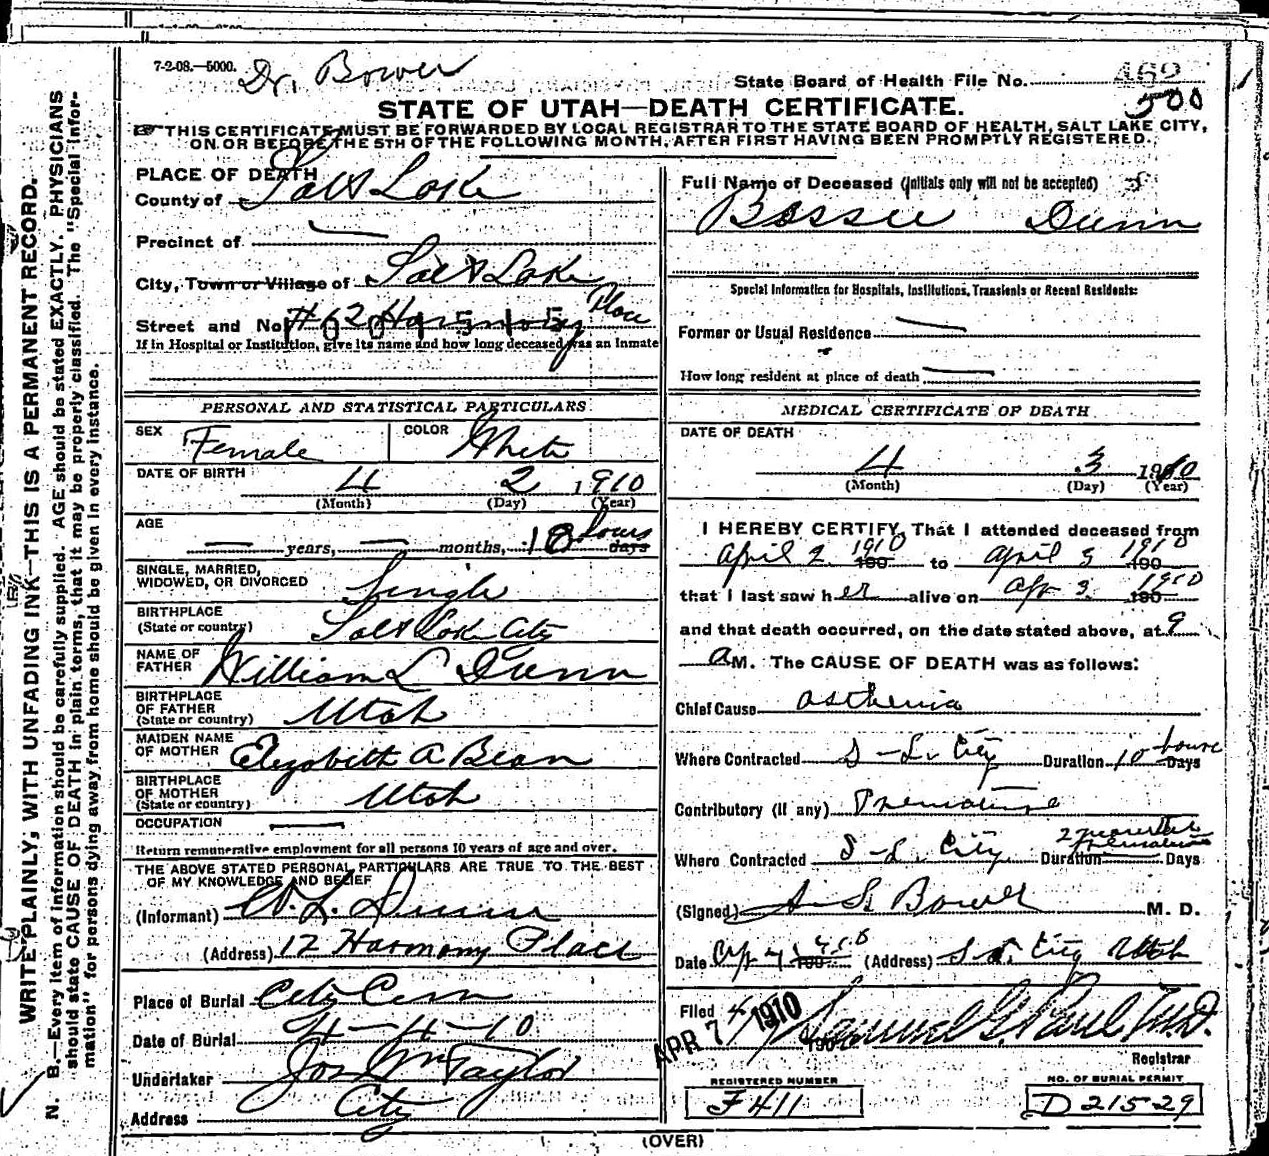 7-2-08.—5000. Dr. Bower
State Board of Health File No. 469
500
STATE OF UTAH—DEATH CERTIFICATE.
THIS CERTIFICATE MUST BE FORWARDED BY LOCAL REGISTRAR TO THE STATE BOARD OF HEALTH, SALT LAKE CITY,
ON OR BEFORE THE 5TH OF THE FOLLOWING MONTH, AFTER FIRST HAVING BEEN PROMPTLY REGISTERED.
WRITE PLAINLY, WITH UNFADING INK—THIS IS A PERMANENT RECORD.
N. B.—Every item of information should be carefully supplied. AGE should be stated EXACTLY. PHYSICIANS
should state CAUSE OF DEATH in plain terms, that it may be properly classified. The "Special Infor-
mation" for persons dying away from home should be given in every instance.
PLACE OF DEATH
County of Salt Lake
Precinct of —
City, Town or Village of Salt Lake
Street and No. #62 Harmony Place
If in Hospital or Institution, give its name and how long deceased was an Inmate
PERSONAL AND STATISTICAL PARTICULARS
SEX Female COLOR White
DATE OF BIRTH 4 2 1910
(Month) (Day) (Year)
AGE — years, — months, 18 hours days
SINGLE, MARRIED,
WIDOWED, OR DIVORCED Single
BIRTHPLACE
(State or country) Salt Lake City
NAME OF
FATHER William L Dunn
BIRTHPLACE
OF FATHER
(State or country) Utah
MAIDEN NAME
OF MOTHER Elizabeth A Bean
BIRTHPLACE
OF MOTHER
(State or country) Utah
OCCUPATION —
Return remunerative employment for all persons 10 years of age and over.
THE ABOVE STATED PERSONAL PARTICULARS ARE TRUE TO THE BEST
OF MY KNOWLEDGE AND BELIEF
(Informant) W. L. Dunn
(Address) 12 Harmony Place
Place of Burial City Cem
Date of Burial 4-4-10
Undertaker Jos Wm Taylor
Address City
Full Name of Deceased (Initials only will not be accepted)
Bessie Dunn
Special Information for Hospitals, Institutions, Transients or Recent Residents:
Former or Usual Residence —
How long resident at place of death —
MEDICAL CERTIFICATE OF DEATH
DATE OF DEATH
4 3 1910
(Month) (Day) (Year)
I HEREBY CERTIFY, That I attended deceased from
April 2 1910 190 to April 3 1910 190
that I last saw her alive on Apr 3 1910 190
and that death occurred, on the date stated above, at 9
AM. The CAUSE OF DEATH was as follows:
Chief Cause asthenia
Where Contracted S-L. City Duration 10 hours Days
Contributory (if any) Premature
Where Contracted S-L. City Duration 2 premature Days
(Signed) Bower M. D.
Date Apr 4 1910 190 (Address) S. L. City Utah
Filed APR 7 1910 190 Samuel G. Paul M.D.
Registrar
REGISTERED NUMBER
F411
NO. OF BURIAL PERMIT
D21529
(OVER)